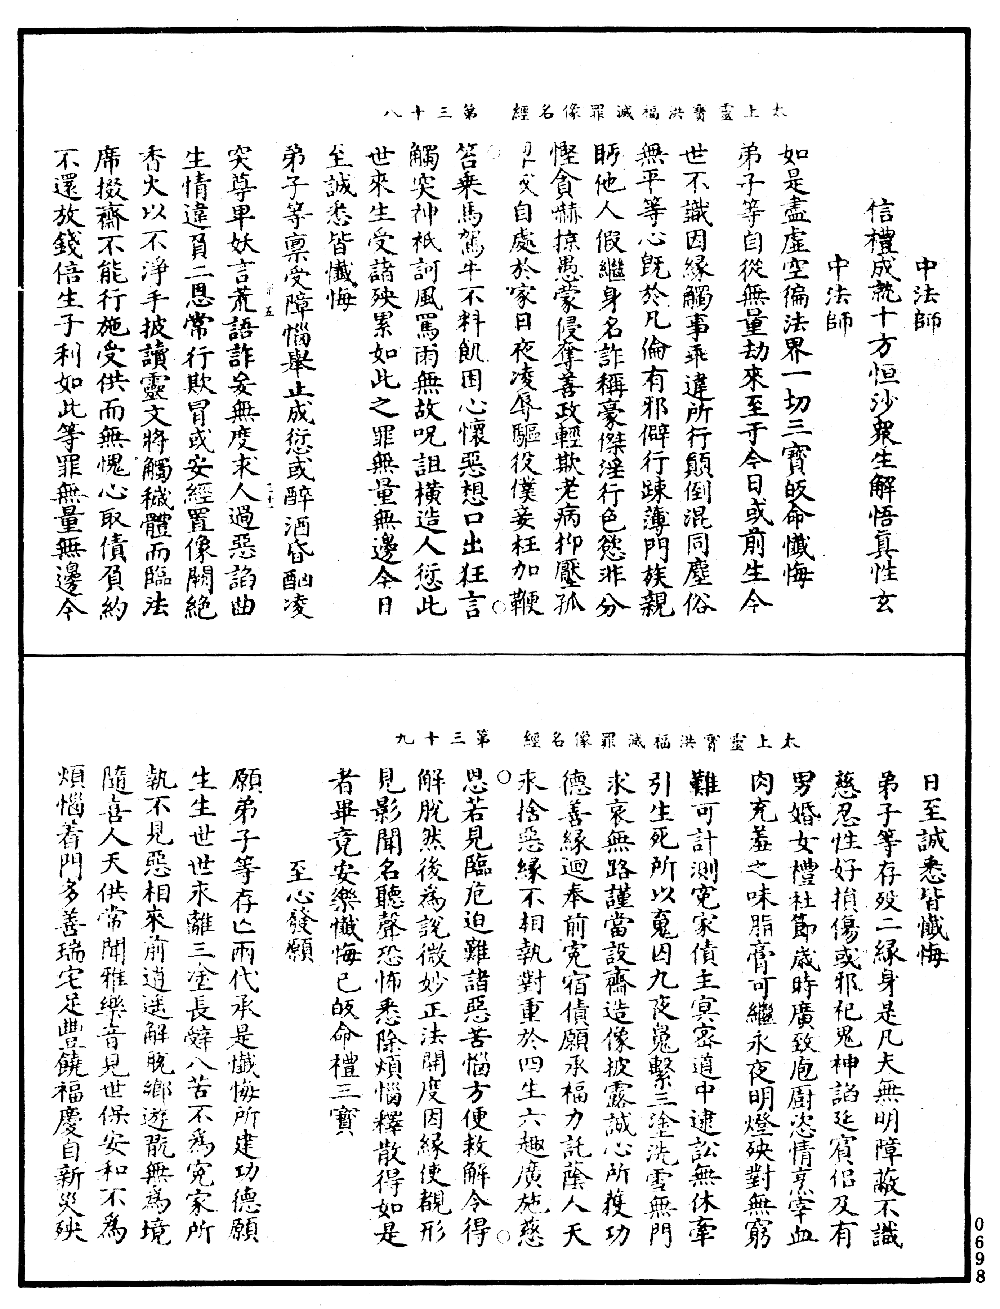 太上靈寳洪福滅罪像名經　第三十八
中法師
信禮成就十方恒沙衆生解悟真性玄
中法師
如是盡虛空徧法界一切三寳皈命懺悔
弟子等自從無量劫來至于今日或前生今
世不識因緣觸事乖違所行顛倒混同塵俗
無平等心旣於凡倫有邪僻行踈薄門族親
眄他人假繼身名詐稱豪傑淫行色慾非分
慳貪赫掠愚蒙侵奪善政輕欺老病抑壓孤
自處於家日夜凌辱驅役僕妾枉加鞭
笞乘馬駕牛不料飢困心懷惡想口出狂言
觸突神祇訶風罵雨無故呪詛橫造人愆此
世來生受諸殃累如此之罪無量無邊今日
至誠悉皆懺悔
弟子等稟受障惱舉止成愆或醉酒昏酗凌
突尊卑妖言荒語詐妄無度求人過惡諂曲
生情違負二恩常行欺冒或安經置像關絶
香火以不淨手披讀靈文將觸穢體而臨法
席掇齋不能行施受供而無愧心取債負約
不還放錢倍生子利如此等罪無量無邊今
太上靈寳洪福滅罪像名經　第三十九
日至誠悉皆懺悔
弟子等存歿二緣身是凡夫無明障蔽不識
慈忍性好損傷或邪祀鬼神諂延賓侣及有
男婚女禮社節歲時廣致庖厨恣情烹宰血
肉充羞之味脂膏可繼永夜明燈殃對無窮
難可計測寃家債主冥密道中逮訟無休牽
引生死所以䰟囚九夜䰟繫三塗洗雪無門
求哀無路謹當設齋造像披露誠心所獲功
德善緣迴奉前寃宿債願承福力託蔭人天
永捨惡緣不相執對重於四生六趣廣施慈
恩若見臨危迫難諸惡苦惱方便救解令得
解脫然後爲說微妙正法開度因緣使覩形
見影聞名聽聲恐怖悉除煩惱釋散得如是
者畢竟安樂懺悔已皈命禮三寳
至心發願
願弟子等存亡兩代承是懺悔所建功德願
生生世世永離三塗長辭八苦不爲寃家所
執不見惡相來前逍遥解脫鄉遊翫無爲境
隨喜人天供常聞雅樂音見世保安和不爲
煩惱着門多善瑞宅足豐饒福慶自新災殃
0698